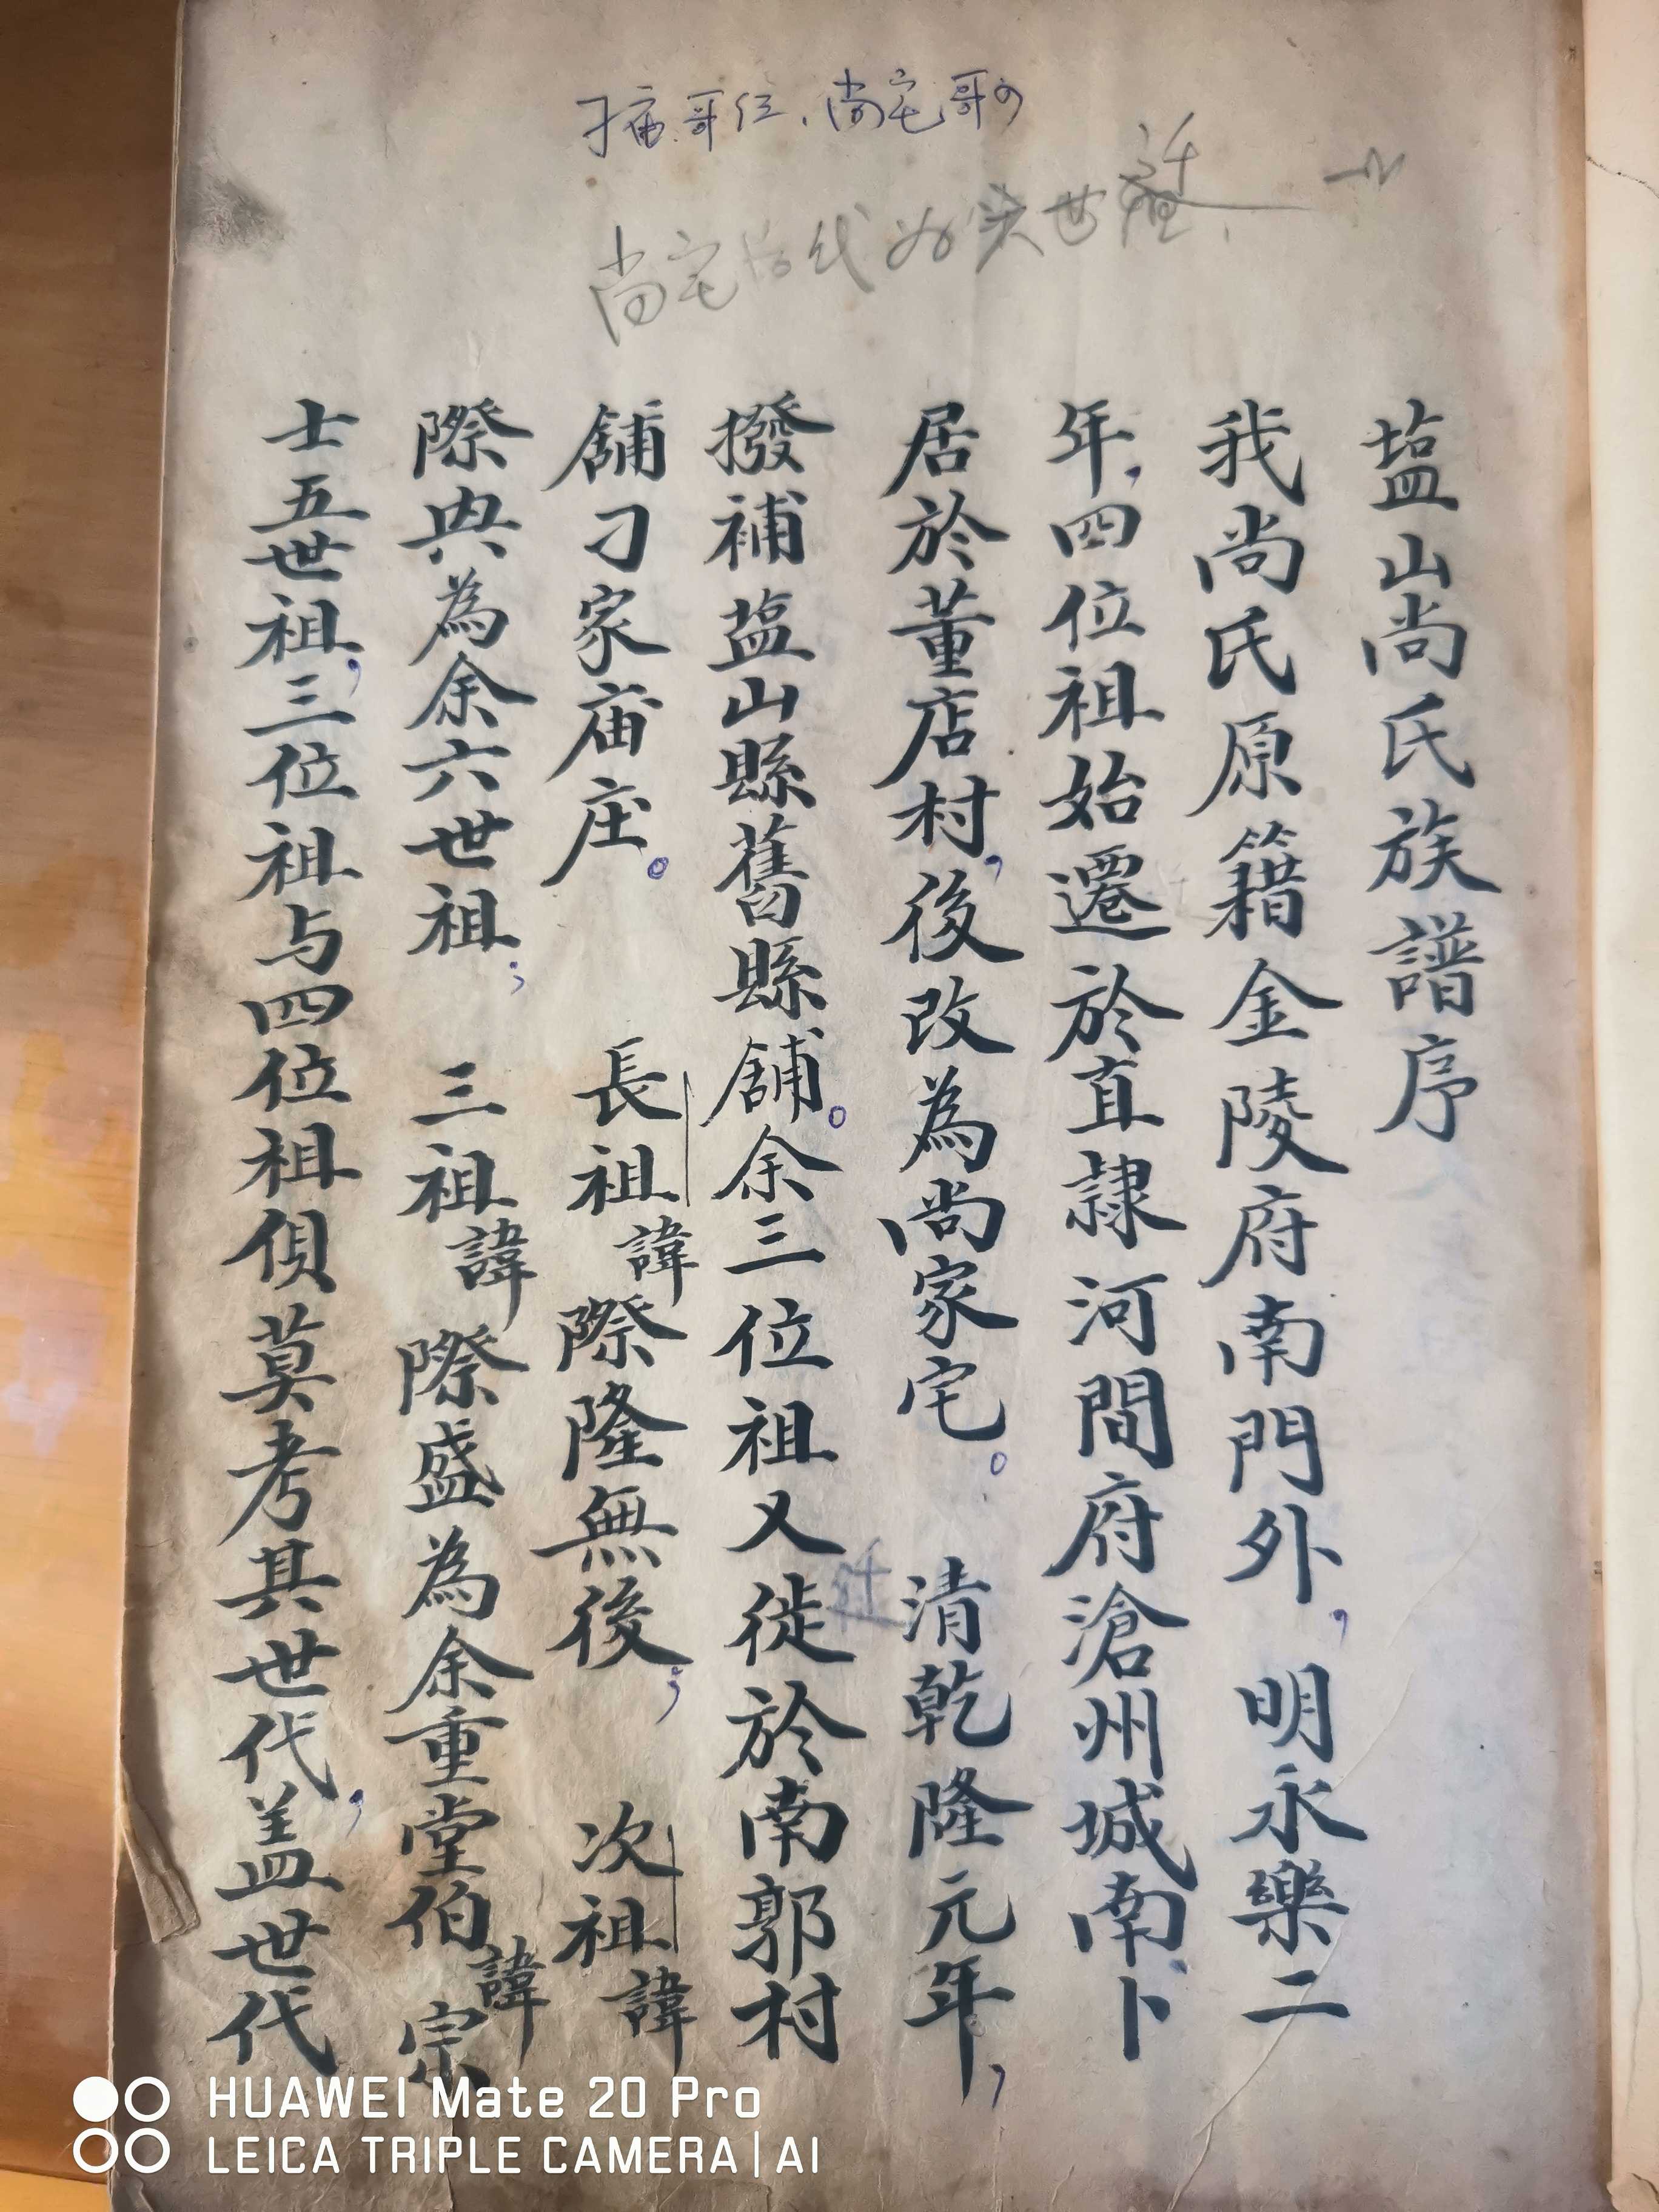 刁庙哥仨、尚宅哥
尚宅后代为宋世
迁
塩山尚氏族譜序
我尚氏原籍金陵府南門外,明永樂二
年,四位祖始遷於直隷河間府滄州城南、卜
居於董店村,後改為尚家宅。清乾隆元年,
撥補塩山縣舊縣舖。余三位祖又徙於南郭村
舖刁家庙庄。長祖諱際隆無後;次祖諱
際典為余六世祖;三祖諱際盛為余重堂伯諱宗
士五世祖,三位祖与四位祖偵莫考其世代,盖世代
HUAWEI Mate 20 Pro
LEICA TRIPLE CAMERA | AI